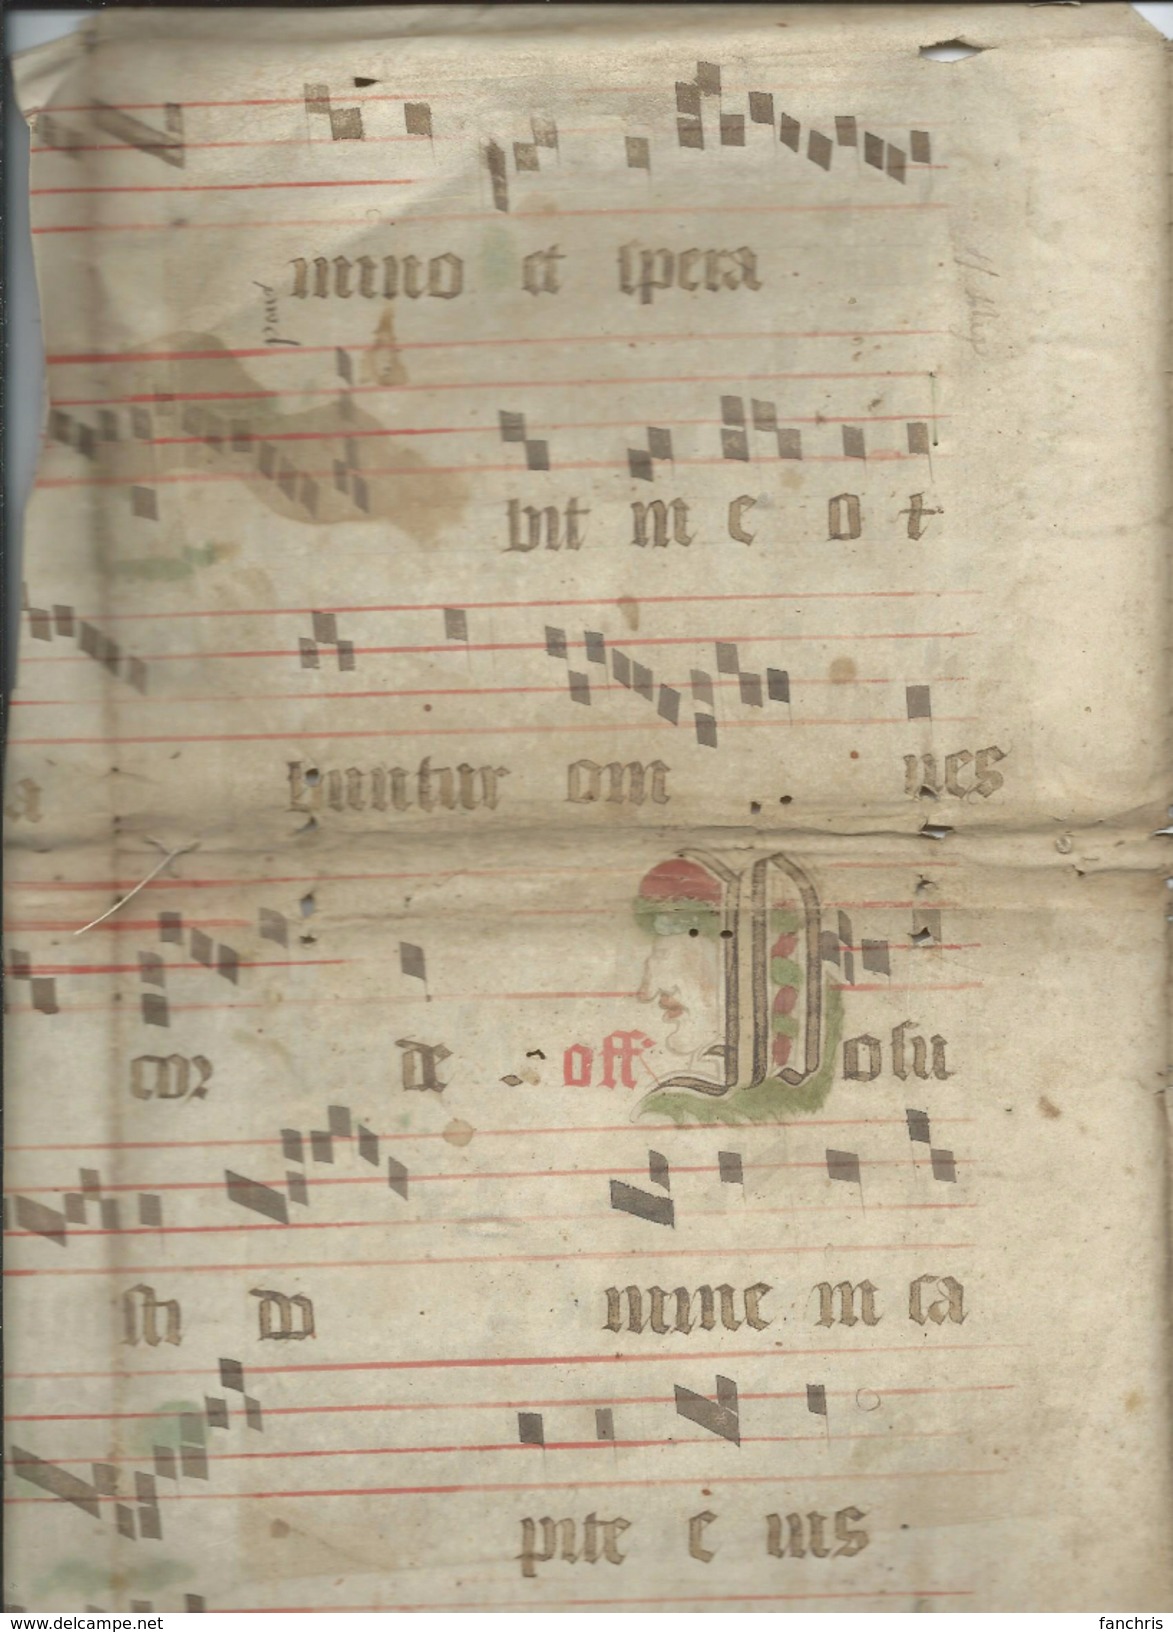 mino et spera
bit in e o t
a buntur om nes
cor de off Posu
sti do mine in ca
pite e ius
www.delcampe.net
fanchris